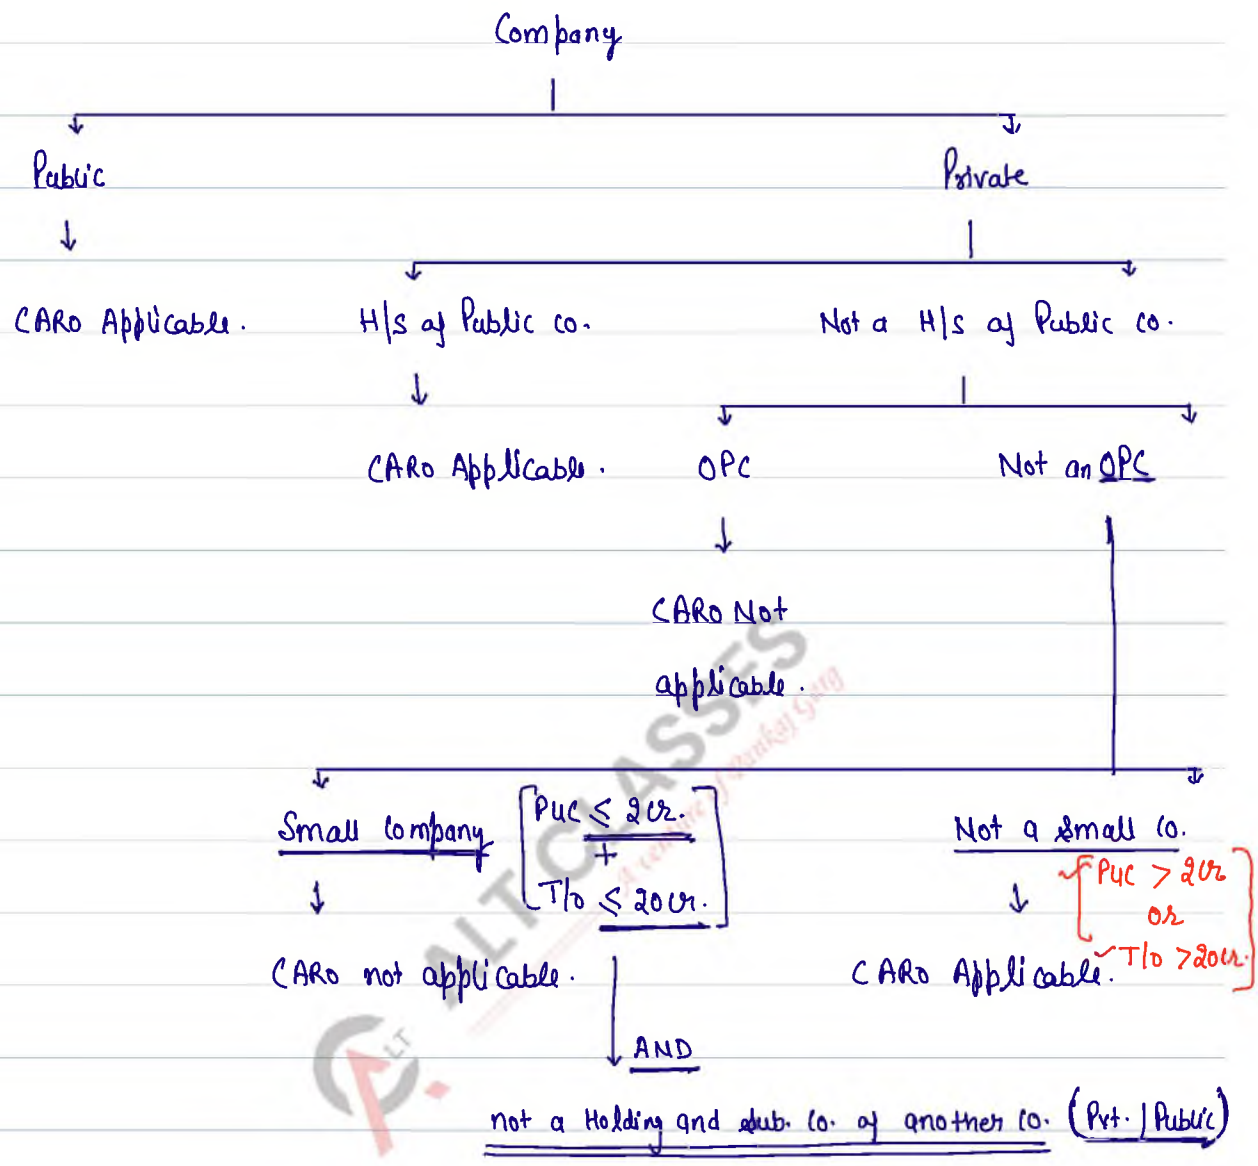 Company
Public Private
CARO Applicable. H/S of Public co. Not a H/S of Public co.
CARO Applicable. OPC Not an OPC
CARO Not
applicable.
Small Company [PUC ≤ 2cr. Not a small co.
+ PUC > 2cr
T/o ≤ 20cr.] or
CARO not applicable. CARO Applicable. T/o >20cr.
AND
not a Holding and sub. co. of another co. (Pvt. | Public)
ALT CLASSES
A venture of Pankaj Garg
LT